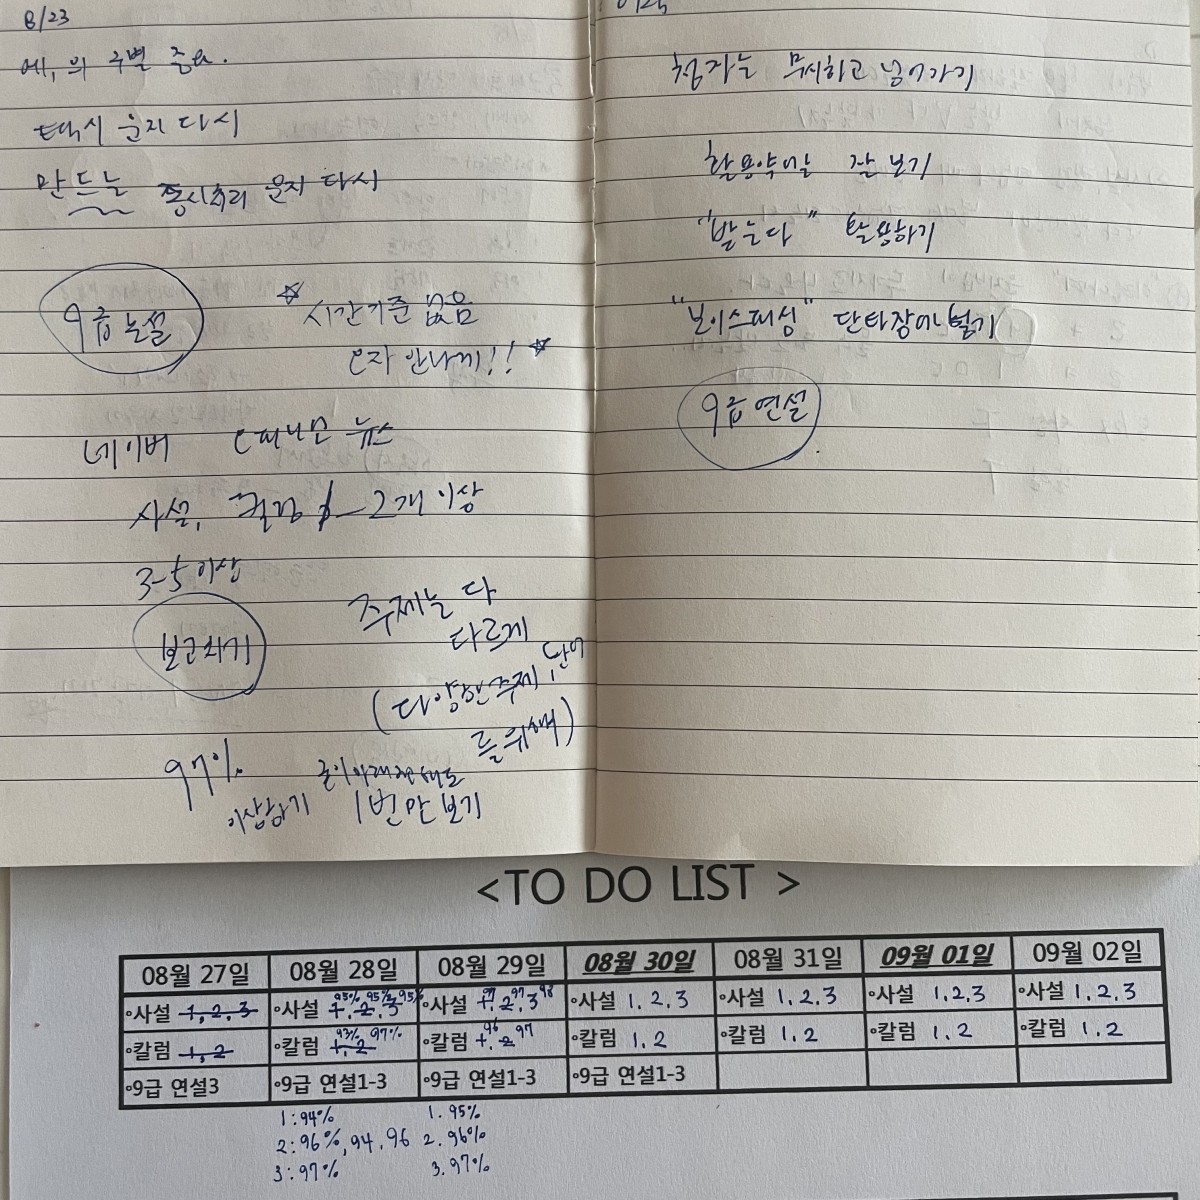 8/23
에, 의 구별 중요.
택시 문자 다시
만드는 동시처리 문자 다시
9급 논설
☆ 시간기준 없음
오자 안나게!! ☆
네이버 뉴스
사설, 칼럼 2개 이상
3-5 이상
보고치기
주제는 다
다르게
(다양한 주제, 단어
를 위해)
97%
이상하기
1번만 보기
첨자는 무시하고 넘어가기
활용약어 잘 보기
"받는다" 활용하기
"보이스피싱" 단타장어 넣기
9급 연설
<TO DO LIST >
08월 27일 08월 28일 08월 29일 08월 30일 08월 31일 09월 01일 09월 02일
95% 95% 95% 97 97 98
◦사설 1, 2, 3 ◦사설 1. 2. 3 ◦사설 1. 2. 3 ◦사설 1. 2. 3 ◦사설 1. 2. 3 ◦사설 1. 2. 3 ◦사설 1. 2. 3
93% 97% 96 97
◦칼럼 1, 2 ◦칼럼 1. 2 ◦칼럼 1. 2 ◦칼럼 1. 2 ◦칼럼 1. 2 ◦칼럼 1. 2 ◦칼럼 1. 2
◦9급 연설3 ◦9급 연설1-3 ◦9급 연설1-3 ◦9급 연설1-3
1:94% 1. 95%
2:96%, 94. 96 2. 96%
3:97% 3. 97%